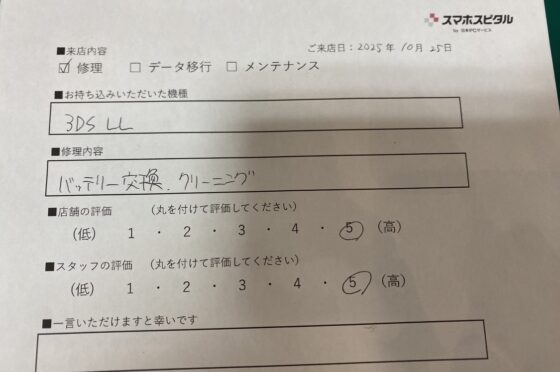 スマホスピタル
by 日本PCサービス
ご来店日：2025年 10月 25日
■来店内容
☑ 修理 □ データ移行 □ メンテナンス
■お持ち込みいただいた機種
3DS LL
■修理内容
バッテリー交換、クリーニング
■店舗の評価 （丸を付けて評価してください）
（低） 1 ・ 2 ・ 3 ・ 4 ・ 5 （高）
■スタッフの評価 （丸を付けて評価してください）
（低） 1 ・ 2 ・ 3 ・ 4 ・ 5 （高）
■一言いただけますと幸いです